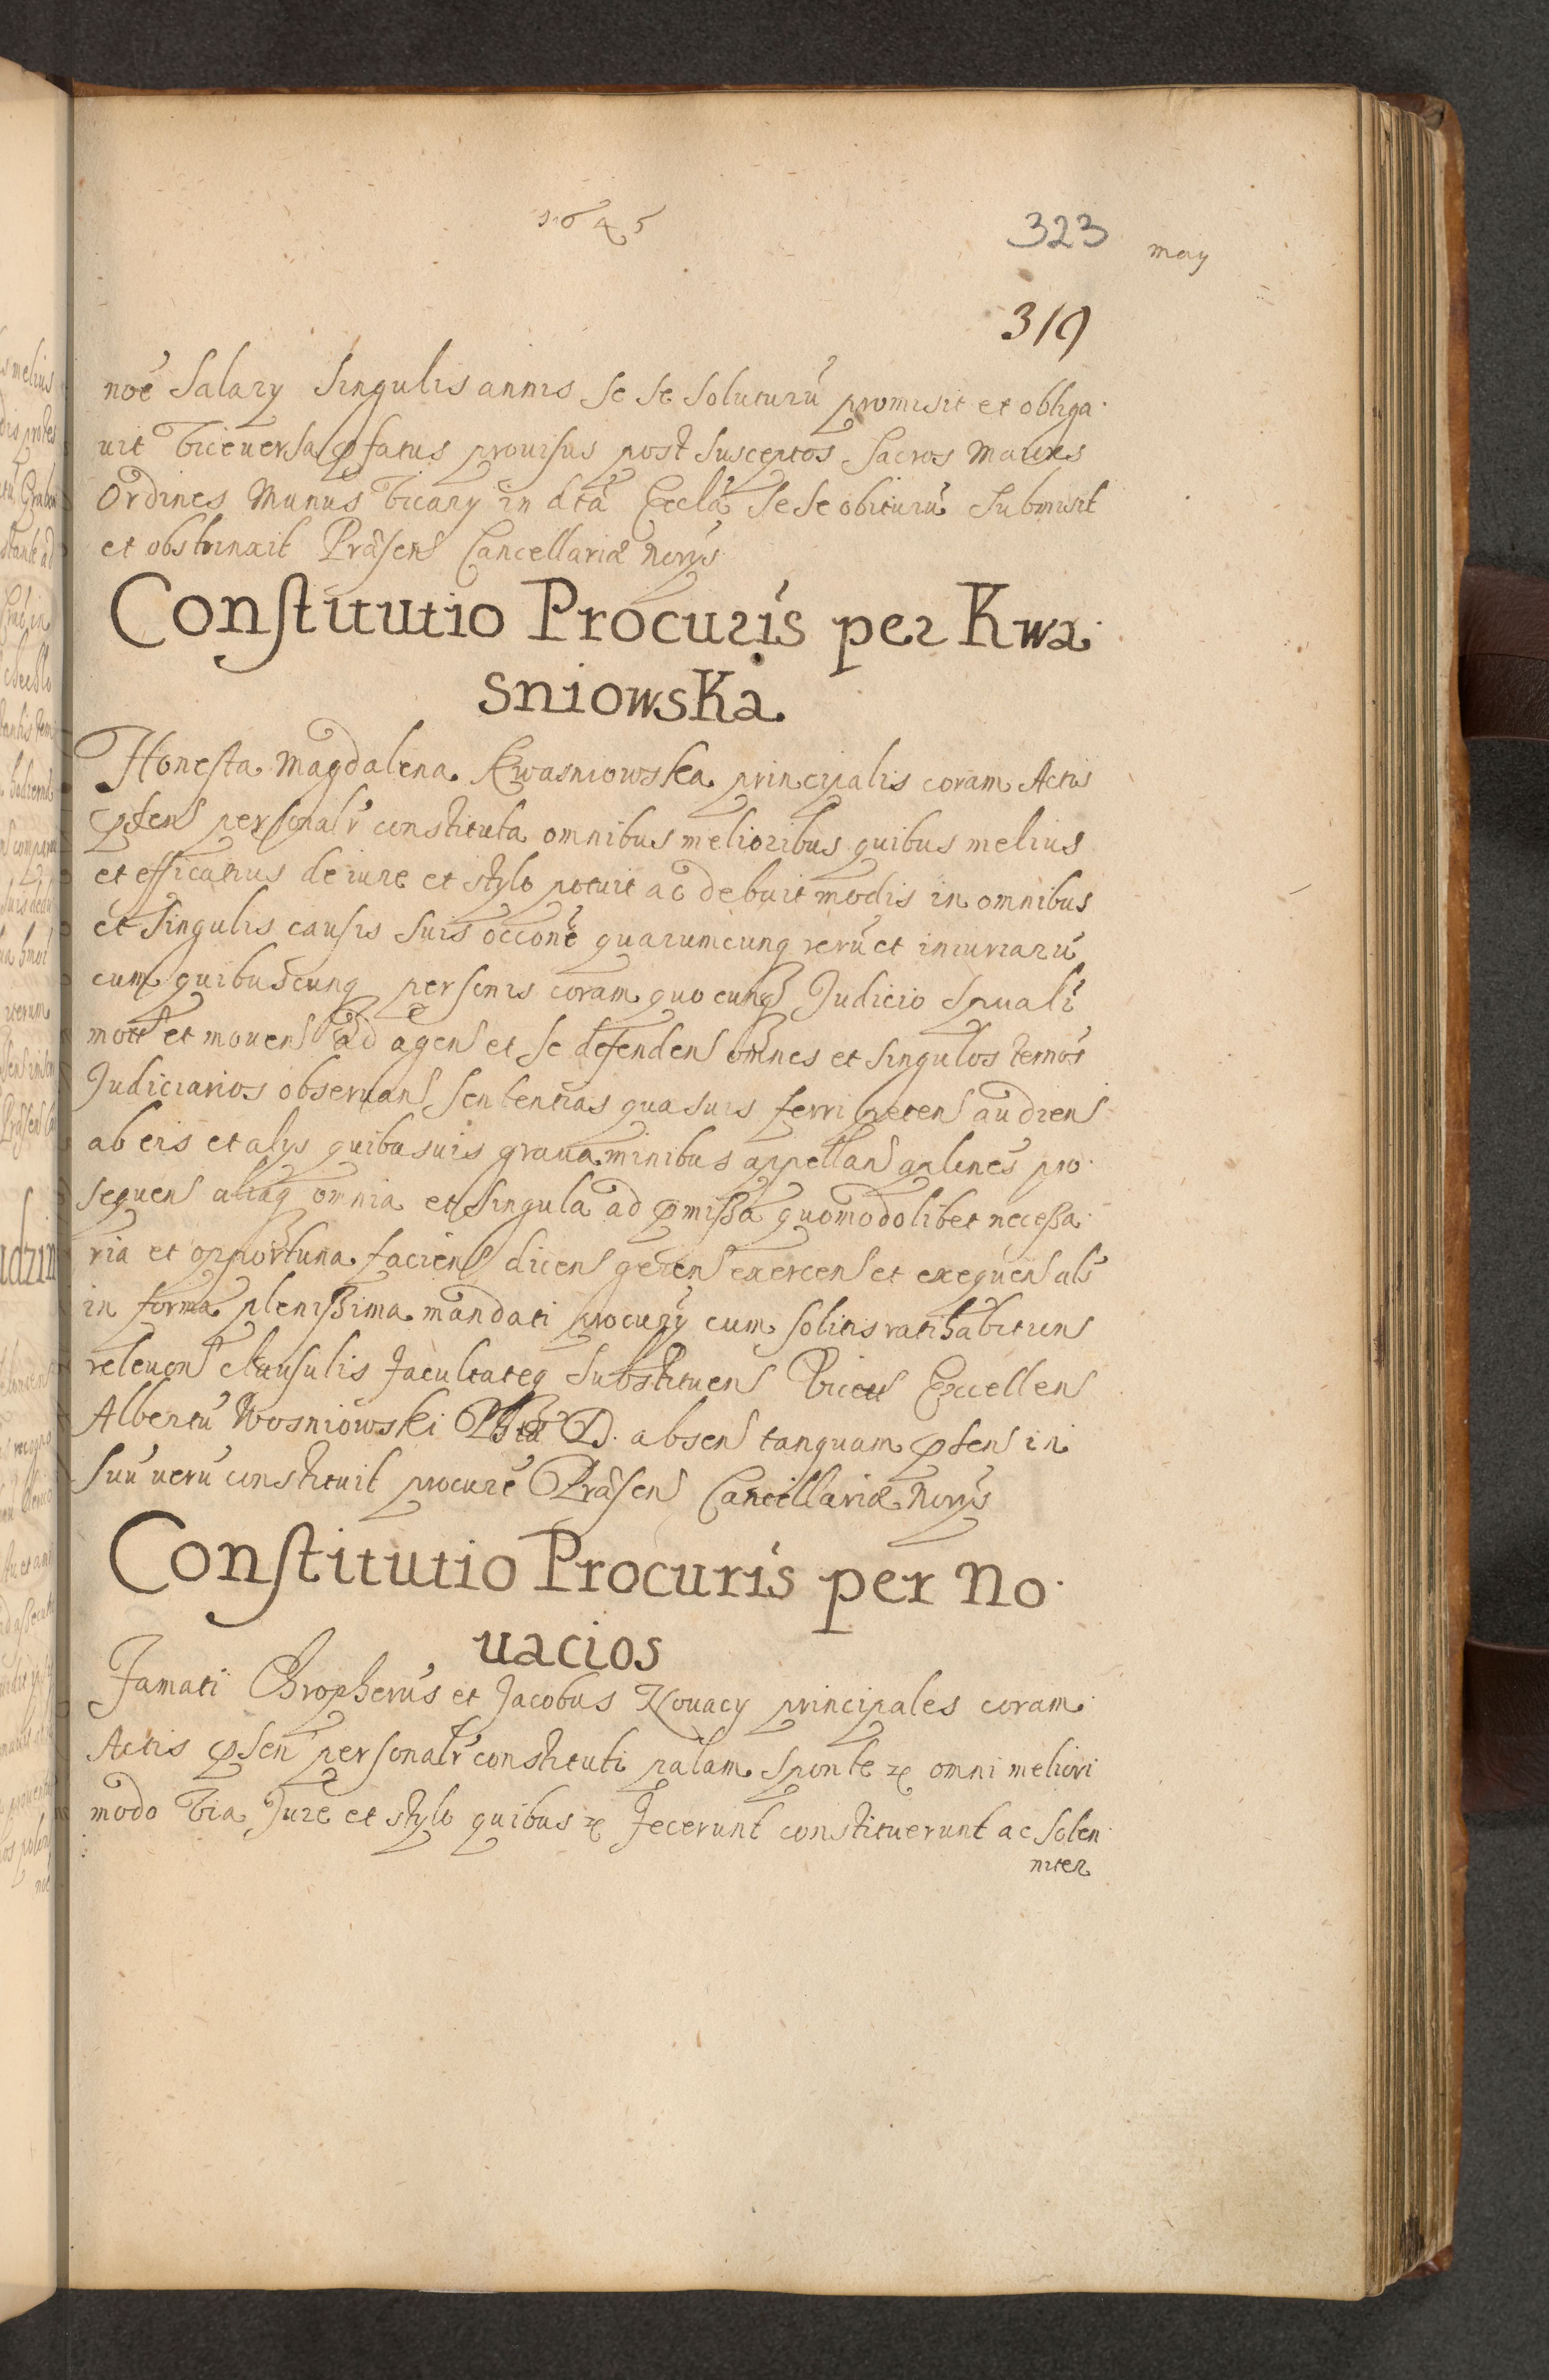 1645
323 may
319
noē Salary Singulis annis se se soluturū promisit et obliga
uit Viceversa pfatus prouisus post susceptos Sacros Maiores
Ordines Munus Vicary in dtā Ecclā se se obiturū submisit
et obstrinxit Præsen Cancellariæ Norys
Constitutio Procuris per Kwa
sniowska
Honesta Magdalena Kwasniowska principalis coram Actis
psen personalr constituta omnibus melioribus quibus melius
et efficatius de iure et stylo potuit ac debuit modis in omnibus
et singulis causis suis occone quarumcunq rerū et iniuriarū
cum quibuscunq personis coram quocunq Judicio Spuali
mott et mouen ad agen et se defenden omnes et singulos termos
Judiciarios obseruan sententias quasuis ferri peten audien
ab eis et alys quibusuis grauaminibus appellan aplones pro
sequen aliaq omnia et singula ad pmissa quomodolibet necessa
ria et opportuna facien dicen geren exercen et exequen als
in forma plenissima mandati procury cum solitis ratihabitien
releuen clausulis facultateq substituen Excellen
Albertū Wosniowski D. absen tanquam psen in
suū uerū constituit procurē Præsen Cancellariæ Norys
Constitutio Procuris per No
uacios
Famati Chropherus et Jacobus Nouacy principales coram
Actis psen personalr constituti palam sponte &c omni meliori
modo Via Jure et stylo quibus &c Fecerunt constituerunt ac solen
niter